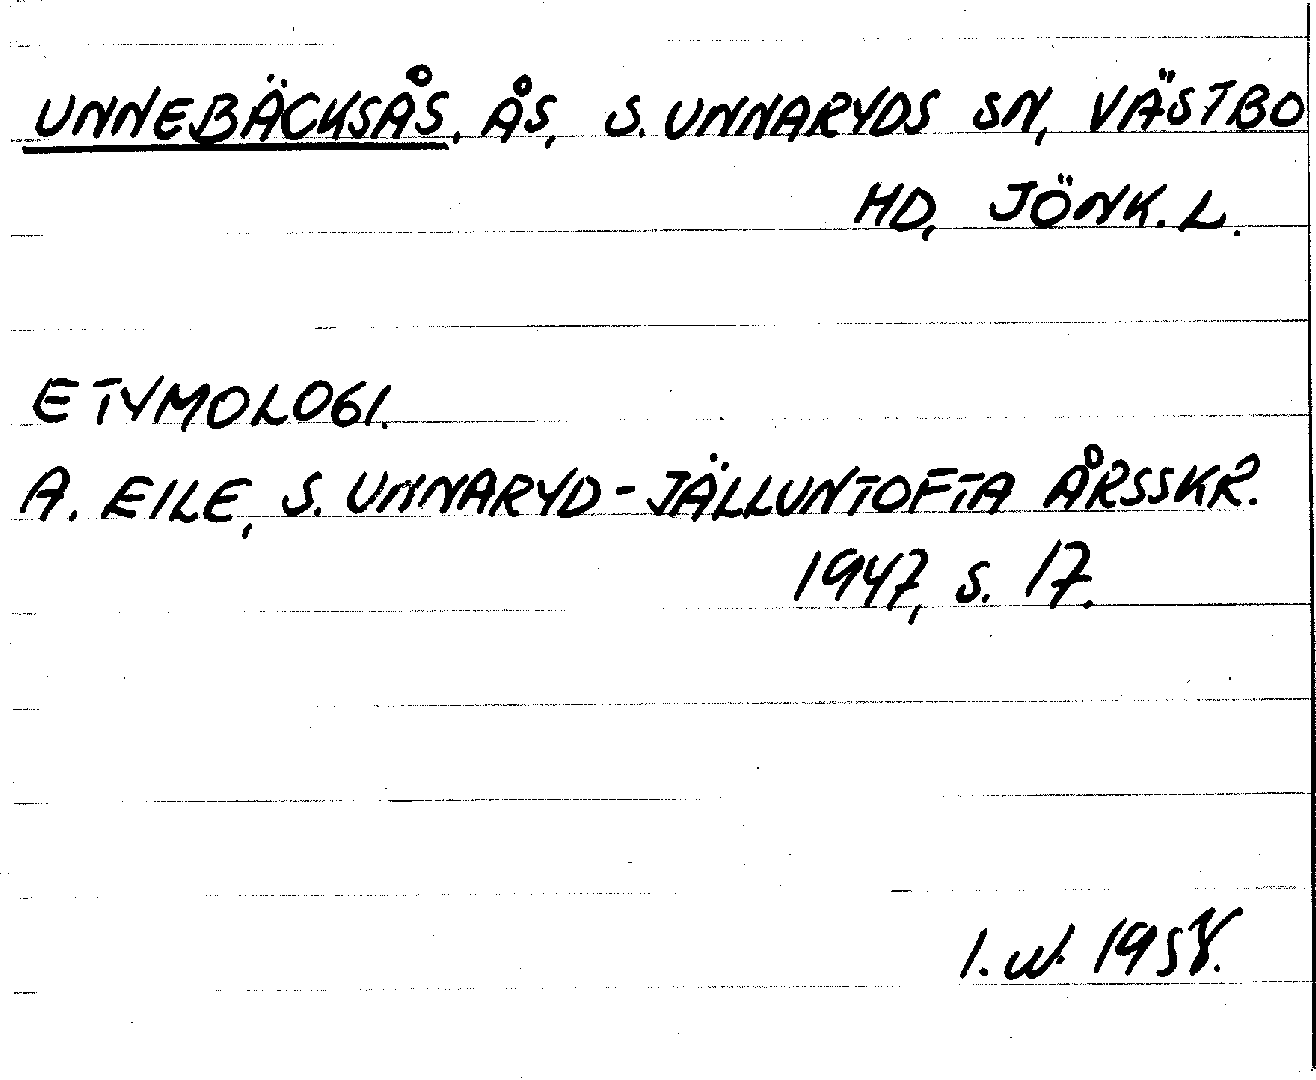 UNNEBÄCKSÅS, ÅS, S. UNNARYDS SN, VÄSTBO
HD, JÖNK. L.
ETYMOLOGI.
A. EILE, S. UNNARYD-JÄLLUNTOFTA ÅRSSKR.
1947, S. 17.
I. W. 1958.